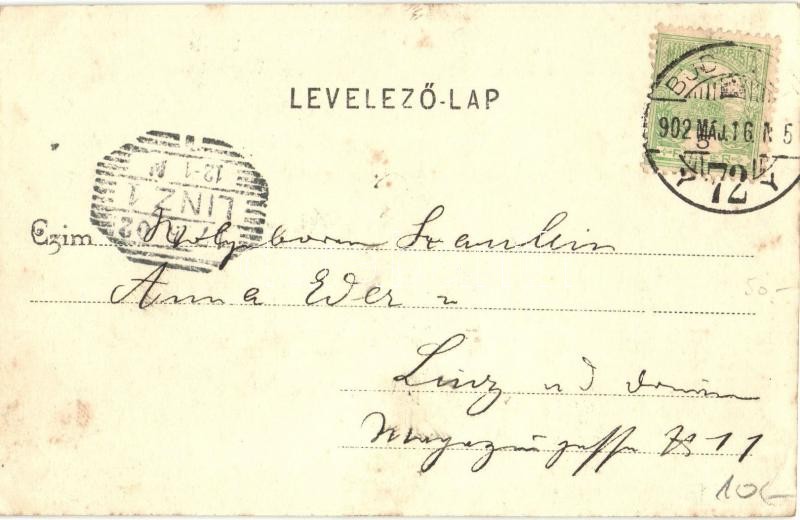 LEVELEZŐ-LAP
BUD
902 MÁJ. 16 N 5
72
12-1 N
LINZ 1
02
Czim
Wolgeboren Fraulein
Anna Eder
Linz a/d Donau
Magazingasse № 11
50.-
10.-